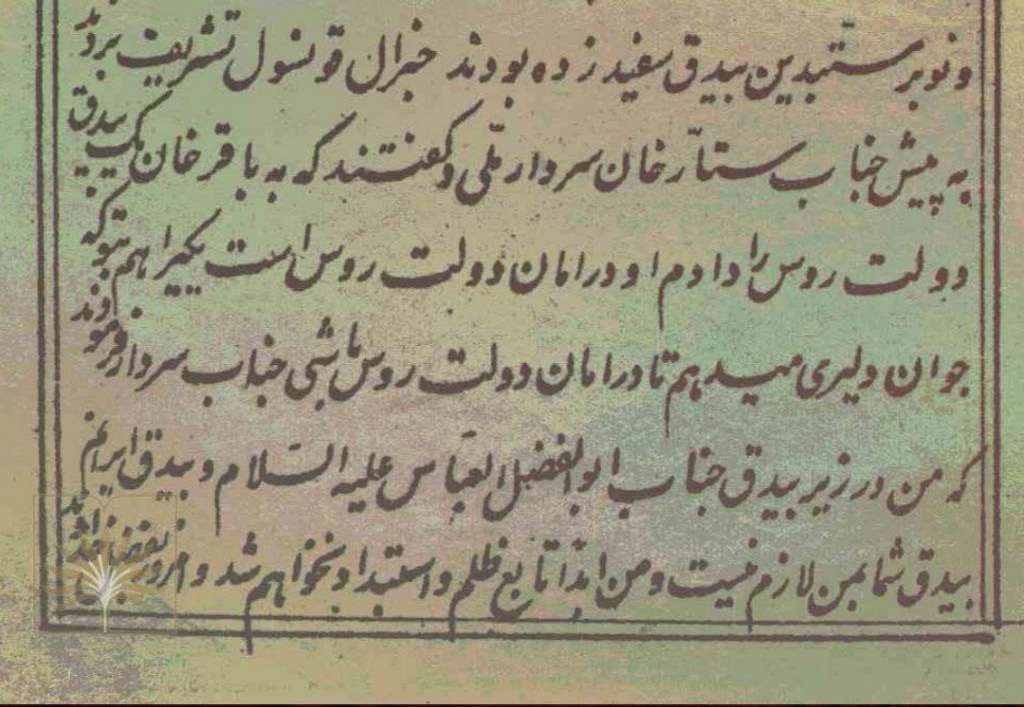 و نوبر مستبدین بیدق سفید زده بودند جنرال قونسول تشریف بردند
به پیش جناب ستار خان سردار ملی و گفتند که به باقر خان یک بیدق
دولت روس را دادم او در امان دولت روس است یکیرا هم بتو که
جوان دلیری میدهم تا در امان دولت روس باشی جناب سردار فرمودند
که من در زیر بیدق جناب ابوالفضل العباس علیه السلام و بیدق ایرانم
بیدق شما بمن لازم نیست و من ابداً تابع ظلم و استبداد نخواهم شد و امروز